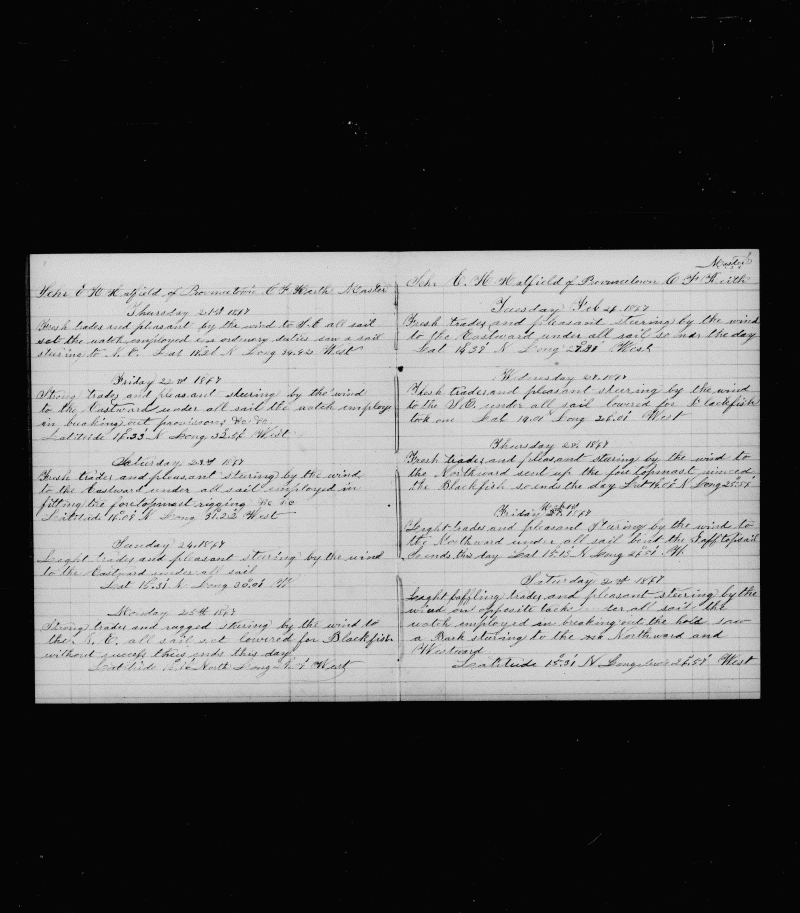 Schr E H Hatfield of Provincetown C F Keith Master
Thursday 21st 1867
Fresh trades and pleasant by the wind to S.E all sail
set the watch employed in ordinary duties saw a sail
stering to N. E. Lat Long West
Friday 22nd 1867
Strong trades and pleasant stering by the wind
to the Eastward under all sail the watch employe
in breaking out provisions &c &c
Latitide 16.33 N Long West
Saturday 23rd 1867
Fresh trades and pleasant stering by the wind
to the Eastward under all sail employed in
fitting the foretopmast rigging &c &c
Latitide N Long 31.22 West
Sunday 24 1867
Laght trades and pleasant stering by the wind
to the Eastward under all sail
Lat N Long W
Monday 25th 1867
Strong trades and ragged stering by the wind to
the N. E. all sail set lowered for Blackfish
without success thus ends this day
Latitide North Long West
Master
Schr E. H Hatfield of Provincetown C F Keith
Tuesday Feb 26 1867
Fresh trades and pleasant stering by the wind
to the Eastward under all sail so ends the day
Lat N Long West
Wednesday 27 1867
Flesh trades and pleasant steering by the wind
to the S.E. under all sail lowered for Blackfish
took one Lat 19.01 Long West
Thursday 28 1867
Fresh trades and pleasant stering by the wind to
the Northward sent up the foretopmast minced
the Blackfish so ends the day Lat N Long
Friday March 1st 1867
Laght trades and pleasant stering by the wind to
the Northward under all sail bent the gafftopsail
So ends this day Lat N Long W.
Saturday 2nd 1867
Laght baffling trades and pleasant stering by the
wind on opposite tacks under all sail the
watch employed in breaking out the hold saw
a Bark stering to the Northward and
Westward
Latitide 15.31 N Longitude West